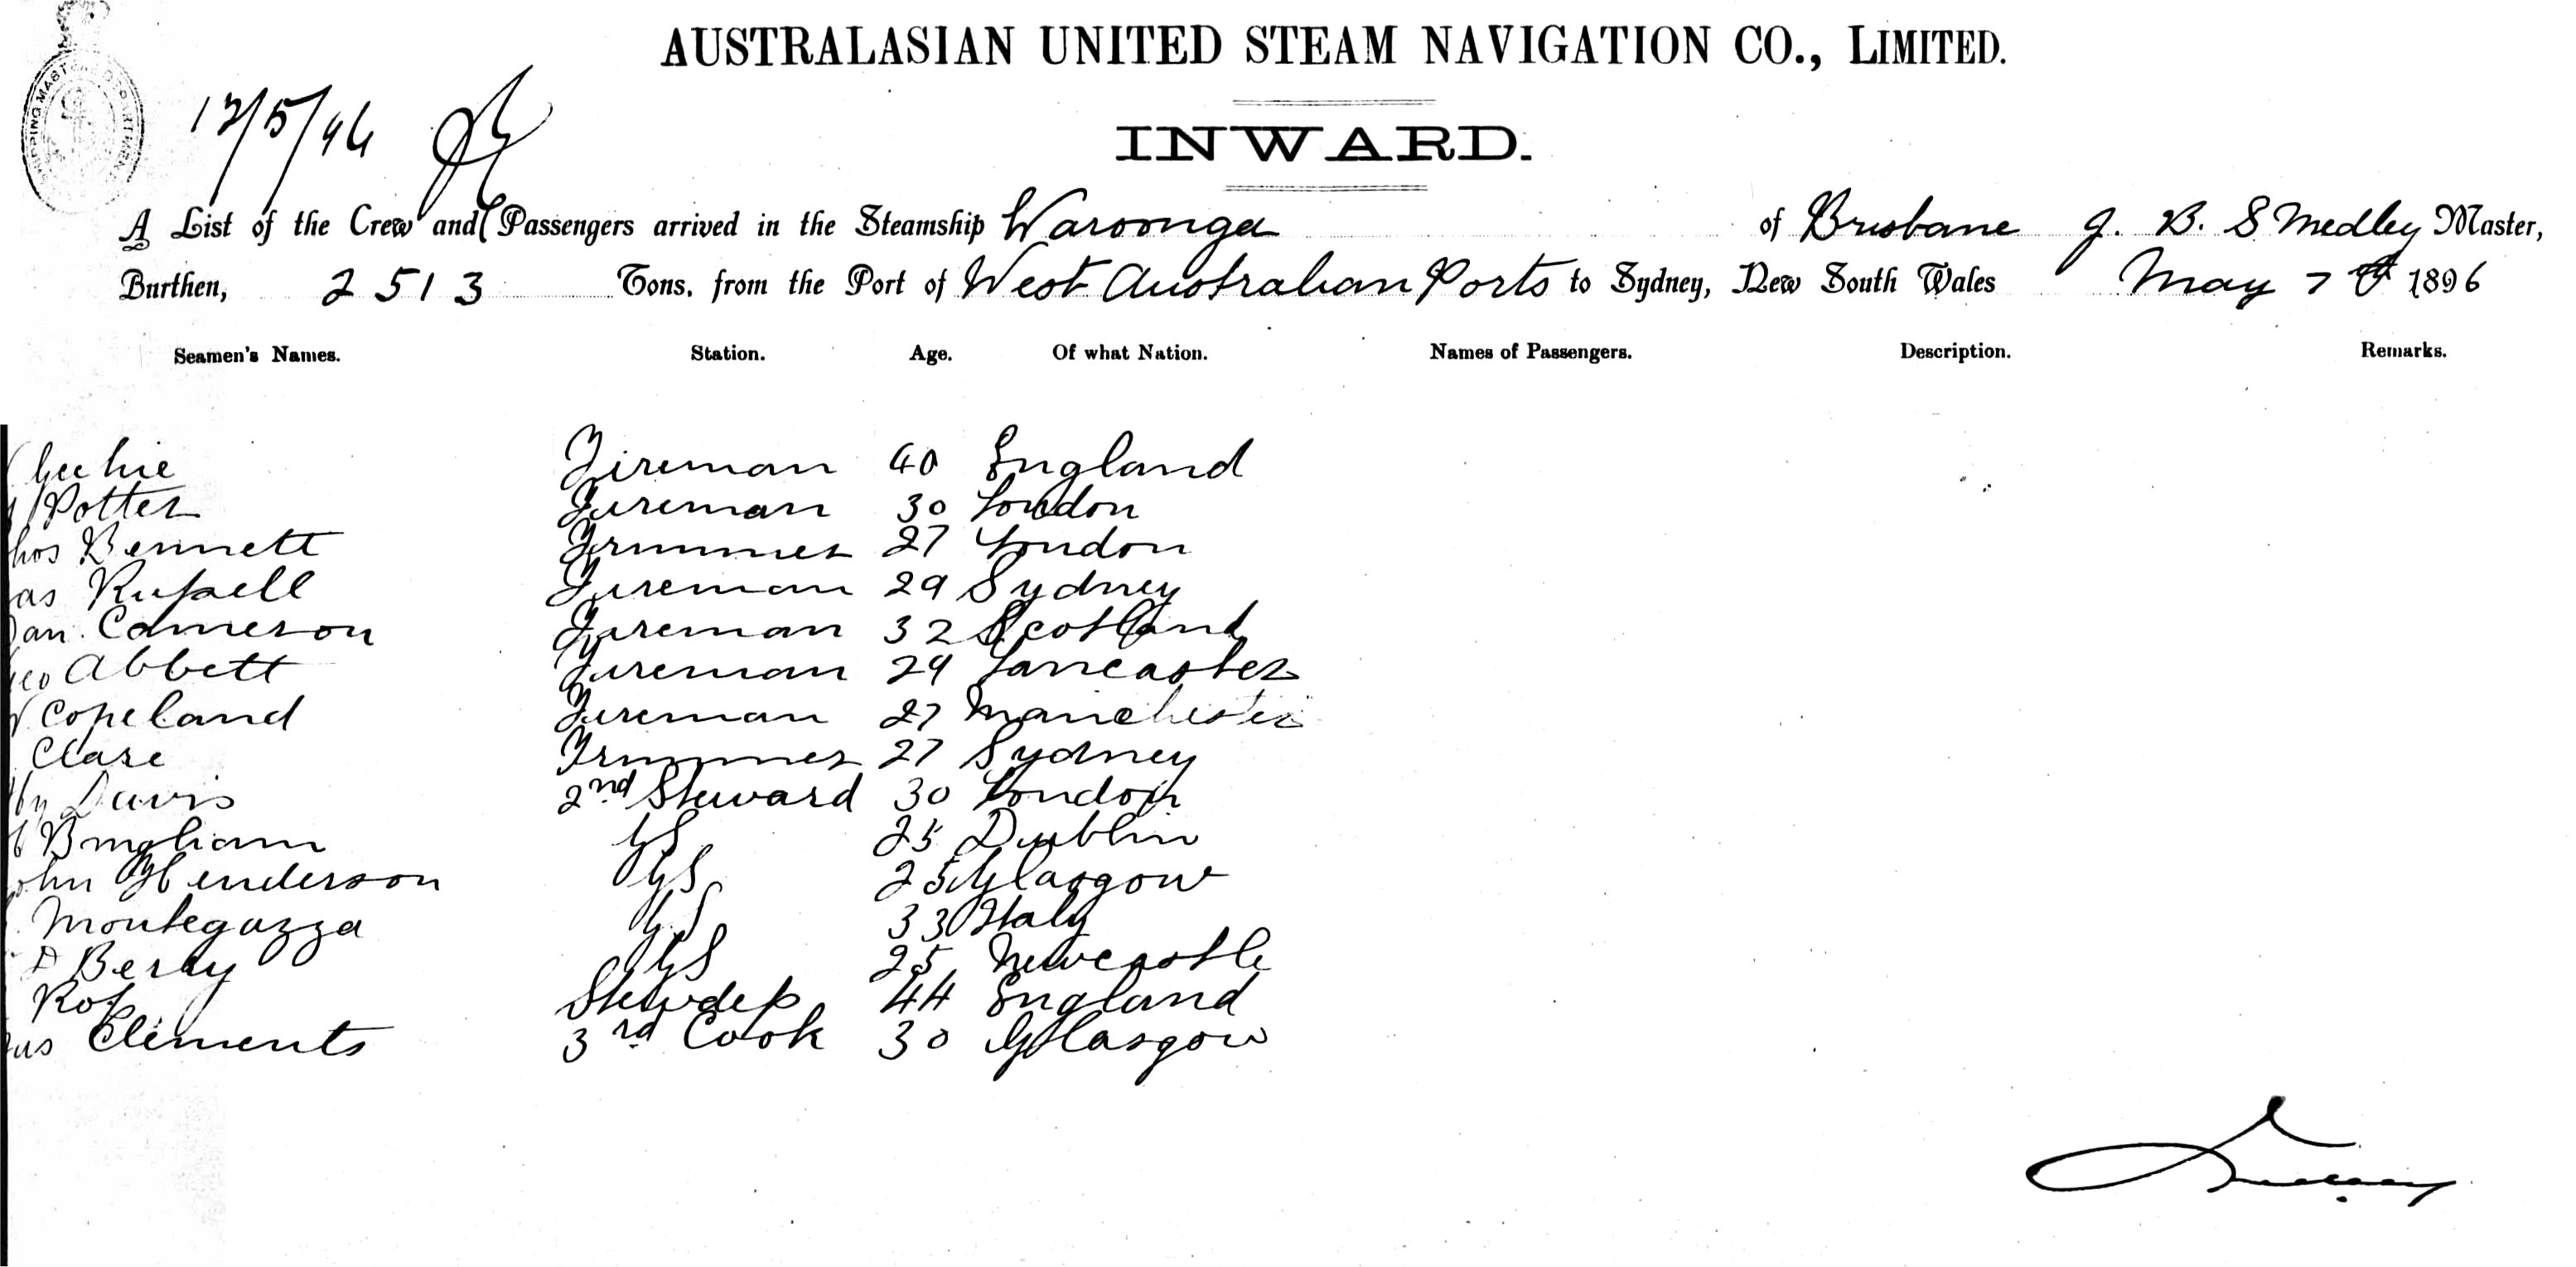 AUSTRALASIAN UNITED STEAM NAVIGATION CO., LIMITED.
12/5/96
INWARD.
A List of the Crew and Passengers arrived in the Steamship Waroonga of Brisbane J. B. Smedley Master,
Burthen, 2513 Tons, from the Port of West Australian Ports to Sydney, New South Wales May 7th 1896
Seamen's Names. Station. Age. Of what Nation. Names of Passengers. Description. Remarks.
Geehie Fireman 40 England
Potter Fireman 30 London
hos Bennett Trimmer 27 London
as Russell Fireman 29 Sydney
Dan. Cameron Fireman 32 Scotland
eo Abbett Fireman 29 Lancaster
W Copeland Fireman 27 Manchester
Clare Trimmer 27 Sydney
hy Davis 2nd Steward 30 London
Bingham GS 25 Dublin
ohn Henderson GS 25 Glasgow
Montegazza GS 33 Italy
Berry GS 25 Newcastle
Ross Stewdess 44 England
us Clements 3rd Cook 30 Glasgow